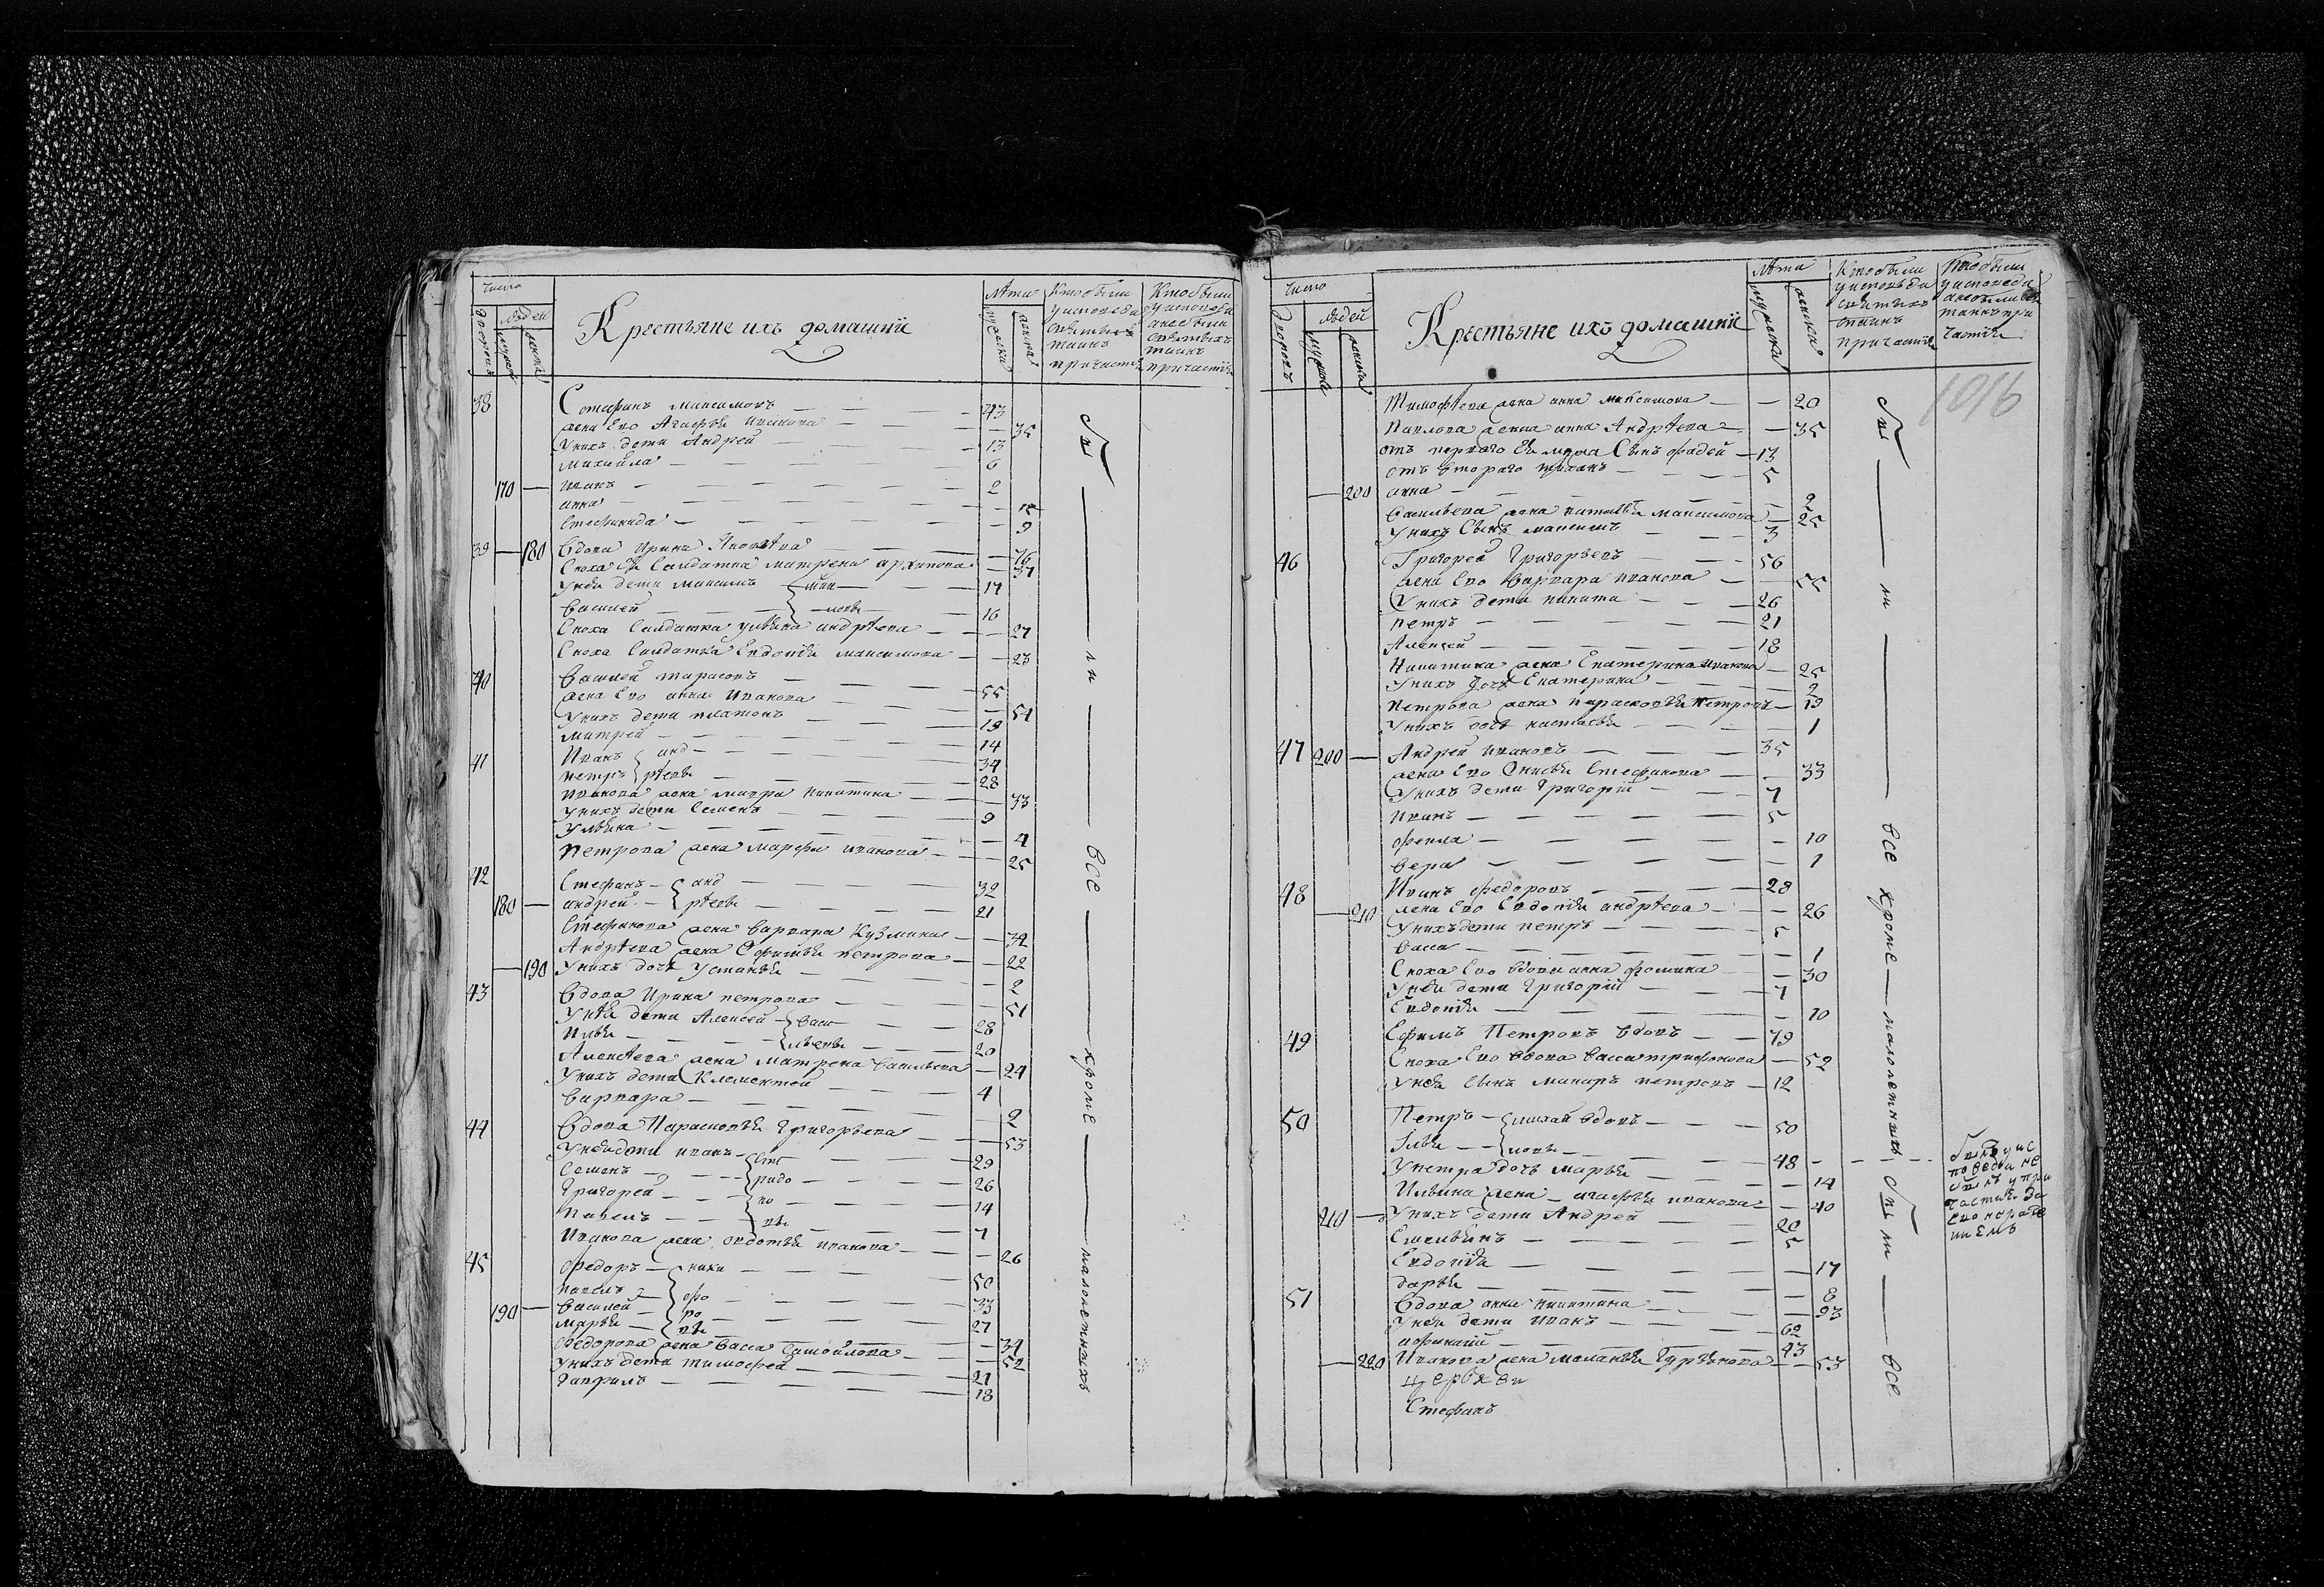 Число
Людей
дворовъ
мужск
женска
Крестьяне ихъ домашнїи
Лѣта
мужска
женска
Кто были
у исповеди
святыхъ
таинъ
причастїи
Кто были
у исповеди
а не были
святыхъ
таинъ
причастїи
38 Стефанъ Максимовъ — 43
жена Ево Агафья Иванова — 35
У нихъ дети Андрей — 13
Михайла — 6
170 — Иванъ — 2
Анна — 12
Стефанида — 9
39 — 180 Вдова Ирина Яковлѣва — 76
Сноха Ея Салдатка Матрена Архипова — 37
У нея дети Максимъ — 17
Василей — 16
Сноха Салдатка Ульяна Андрѣева — 27
Сноха Салдатка Евдокїя Максимова — 23
40 Василей Тарасовъ — 55
жена Ево Анна Иванова — 54
У нихъ дети Платонъ — 19
Митрей — 14
41 Иванъ { анд — 34
Петръ { рѣевы — 28
Иванова жена Мавра Никитина — 33
У нихъ дети Семенъ — 9
Ульяна — 4
Петрова жена Марфа Иванова — 25
42 Стефанъ — { анд — 32
180 — Андрей — { рѣевы — 21
Стефанова жена Варвара Кузмина — 34
Андрѣева жена Софитья Петрова — 22
190 У нихъ дочь Устинья — 2
43 Вдова Ирина Петрова — 51
У нѣя дети Алексей — { Васи — 28
Илья — { льевы — 20
Алексѣева жена Матрена Васильева — 24
У нихъ дети Клементей — 4
Варвара — 2
44 Вдова Парасковья Григорьева — 53
У нея дети Иванъ — { Спи — 29
Семенъ — { ридо — 26
Григорей — { но — 14
Павелъ — { вы — 7
Иванова жена Овдотья Иванова — 26
45 Федоръ — { ники — 50
Павелъ — { фо — 33
190 — Василей — { ро — 27
Марья — { вы — 34
Федорова жена Васса Самойлова — 52
У нихъ дети Тимофей — 21
Гаврилъ — 18
бы — ли — все — кроме — малолетныхъ
Число
Людей
дворовъ
мужска
женска
Крестьяне ихъ домашнїи
Лѣта
мужска
женска
Кто были
у исповѣди
святыхъ
таинъ
причастїи
Кто были
у исповеди
а не были
таинъ при
частїи
1016
Тимофѣева жена Анна Максимова — 20
Павлова жена Анна Андрѣева — 35
отъ перваго Ея мужа Сынъ Фадей — 13
отъ втораго Тиханъ — 5
200 Анна — 2
Васильева жена Наталья Максимова — 25
У нихъ Сынъ Максимъ — 3
46 Григорей Григорьевъ — 56
жена Ево Варвара Иванова — 55
У нихъ дети Никита — 26
Петръ — 21
Алексей — 18
Никитина жена Екатерина Иванова — 25
У нихъ дочь Екатерина — 2
Петрова жена Парасковья Петрова — 19
У нихъ дочь Настасья — 1
47 200 — Андрей Ивановъ — 35
жена Ево Онисья Стефанова — 33
У нихъ дети Григорїй — 7
Иванъ — 5
Фекла — 10
Вера — 1
48 Иванъ Федоровъ — 28
210 жена Ево Евдокїя Андрѣева — 26
У нихъ дети Петръ — 5
Васса — 1
Сноха Ево Вдова Анна Фомина — 30
У нея дети Григорїй — 7
Евдокїя — 10
49 Ефимъ Петровъ вдовъ — 79
Сноха Ево Вдова Васса Трифонова — 52
У нея Сынъ Макаръ Петровъ — 12
50 Петръ — { михай вдовъ — 50
Илья — { ловы — 48
У Петра дочь Марья — 14
Ильина жена — Агафья Иванова — 40
210 — У нихъ дети Андрей — 20
Емельянъ — 5
Евдокїя — 17
Дарья — 8
51 Вдова Анна Никитина — 93
У нея дети Иванъ — 62
Афанасїй — 43
220 Иванова жена Маланья Гурьянова — 53
церкви
Стефанъ
бы — ли — все кроме — малолетныхъ бы ли — все
былъ у ис
поведи не
былъ у при
частия за
ево нераде
нїемъ